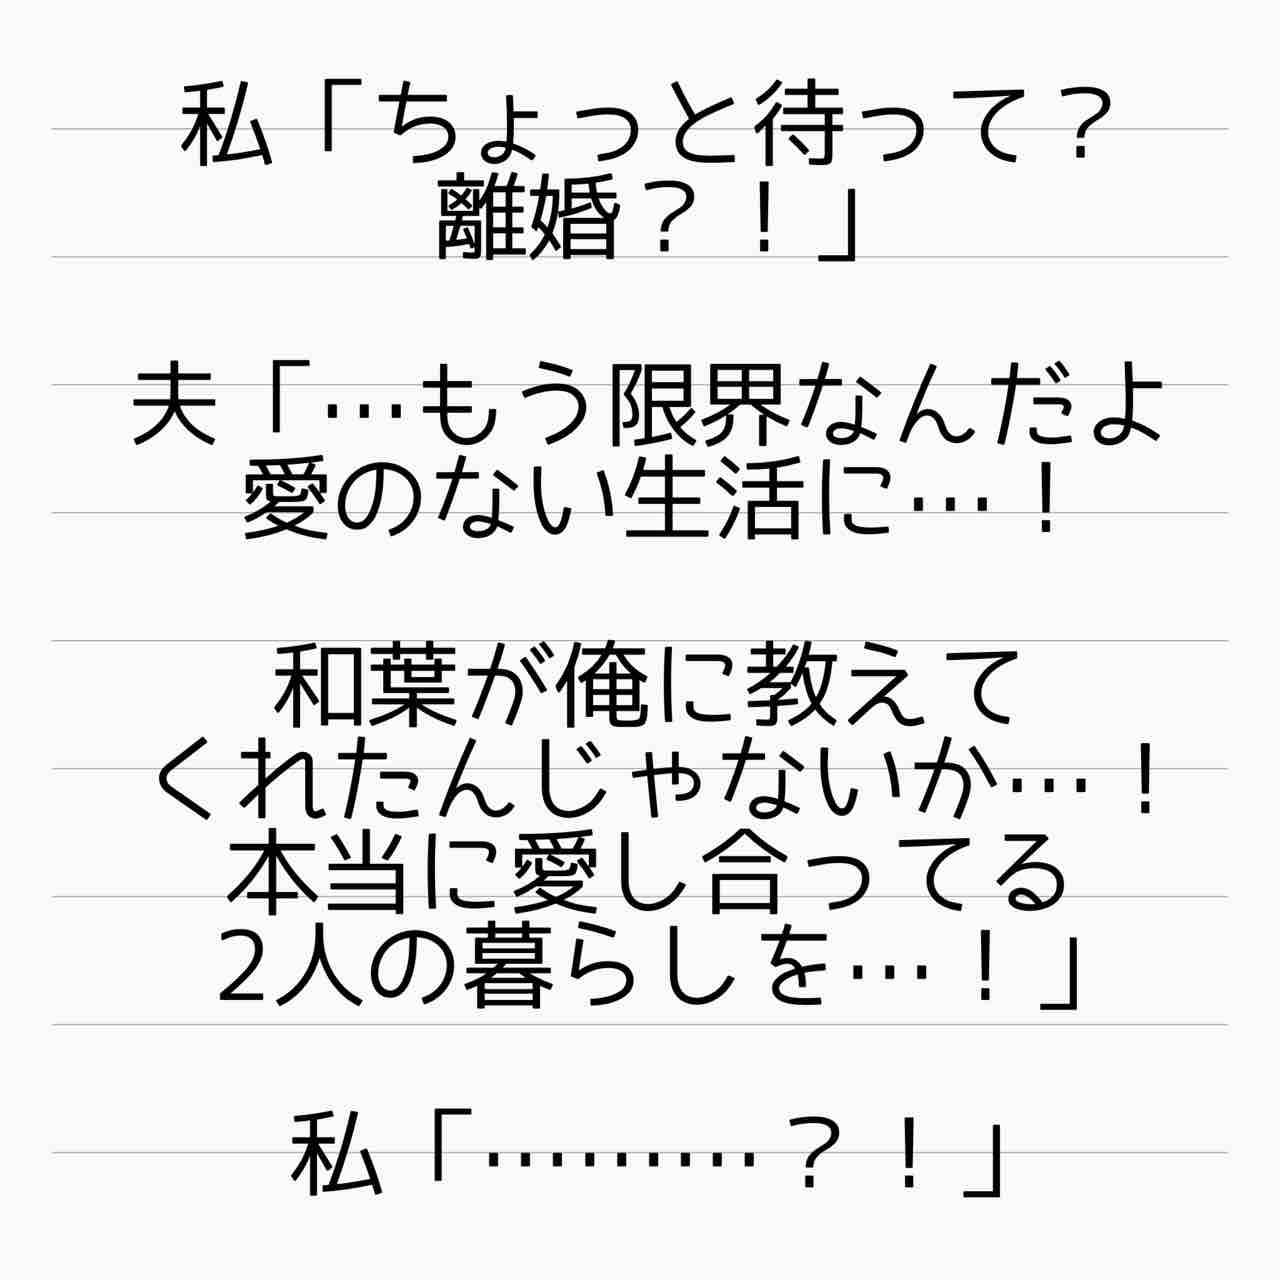 私「ちょっと待って？
離婚？！」
夫「…もう限界なんだよ
愛のない生活に…！
和葉が俺に教えて
くれたんじゃないか…！
本当に愛し合ってる
2人の暮らしを…！」
私「………？！」